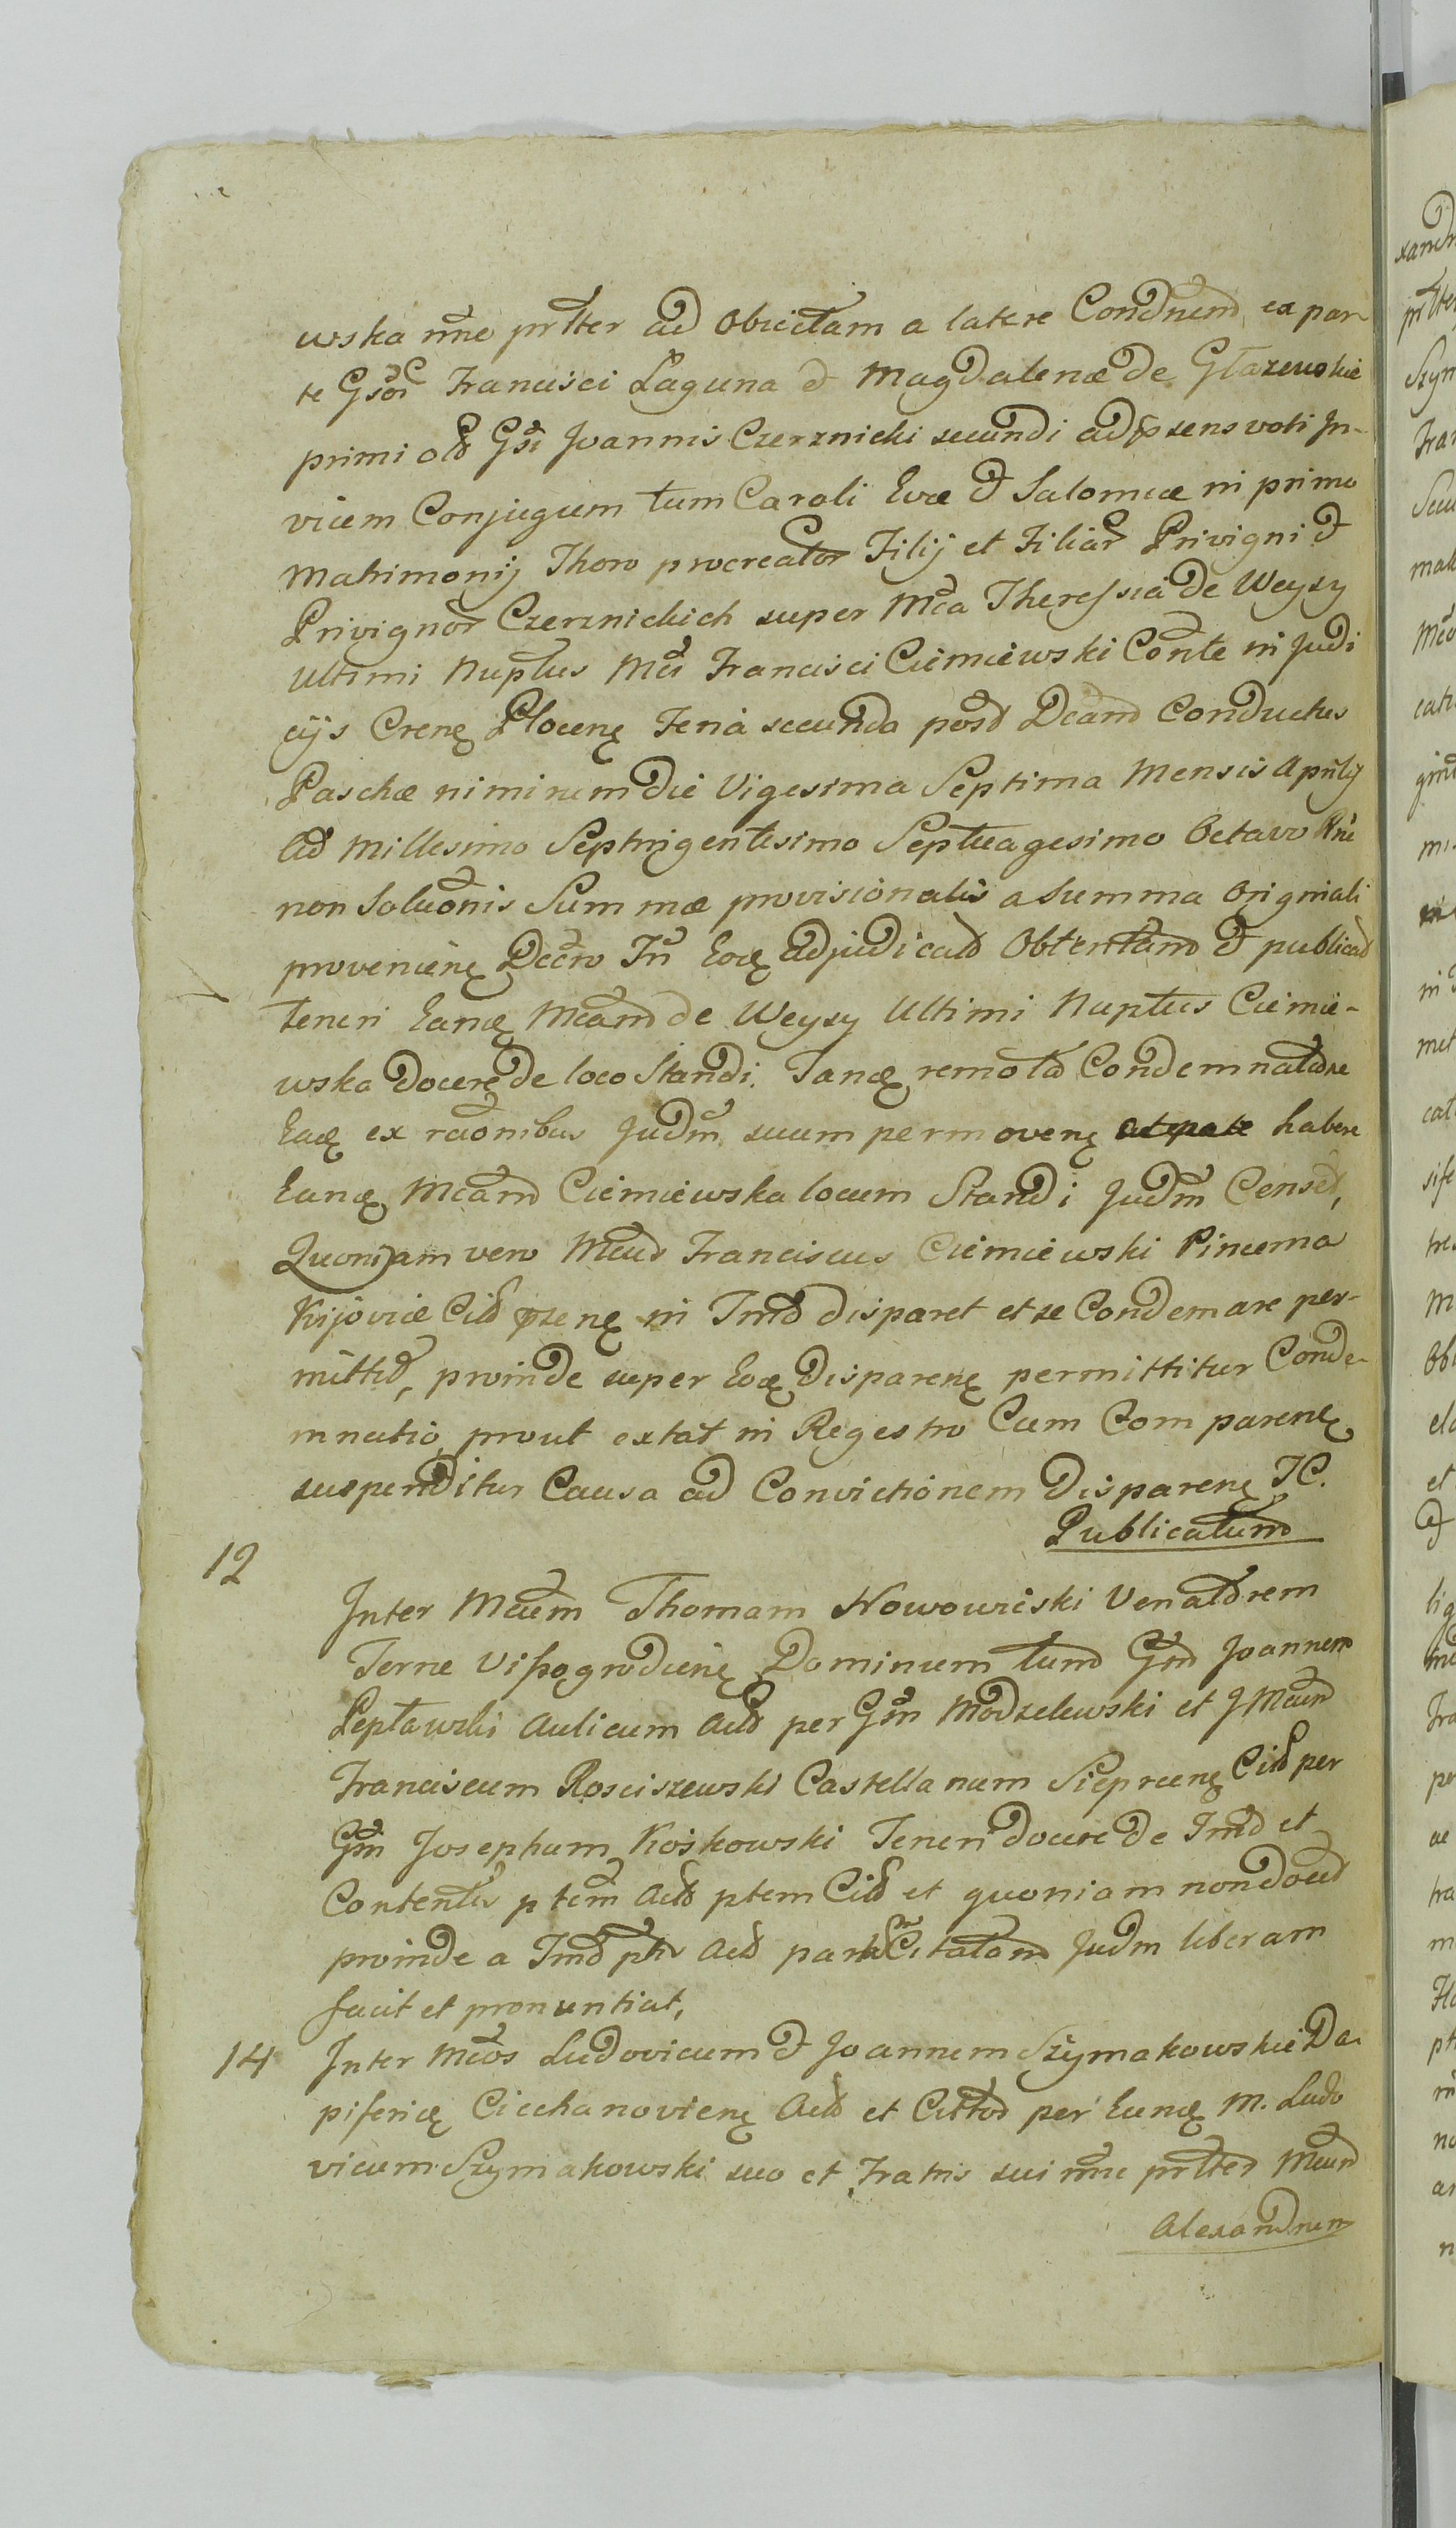 wska nne prlter ad obiectam a latere Condnem ex par
te Gsor Francisci Laguna et Magdalenæ de Głazewskie
primi olt Gsi Joannis Czerznicki secundi ad psens voti In-
vicem Conjugum tum Caroli Evæ et Salomeæ in primo
Matrimonij Thoro procreator Filij et Filiar Privigni et
Privignor Czerznickich super Mca Theressia de Weysy
Ultimi Nuptus Mci Francisci Ciemiewski Conte in Judi
cijs Crenę Plocenę Feria secunda post Dcam Conductus
Paschæ nimirum die Vigesima Septima Mensis Aprilij
Ao Millesimo Septingentesimo Septuagesimo Octavo Rne
non Soluonis Summæ provisionalis a Summa Originali
provenienę Decro In Eoę adjudicat Obtentam et publicat
teneri Eanę Mcam de Weysy Ultimi Nuptus Ciemie-
wska docere de loco Standi. Tanę remota Condemnatore
Eaę ex raonibus Judm suum permovenę habere
Eanę Mcam Ciemiewska locum Standi Judm Censet,
Quoniam vero Mcus Franciscus Ciemiewski Pincerna
Kijoviæ Cit psenę in Tmo disparet et se Condemnare per-
mittit, proinde super Eoę Disparenę permittitur Conde-
mnatio, prout extat in Regestro Cum Comparenę
suspenditur Causa ad Convictionem Disparenę JC.
Publicatum
12
Inter Mcum Thomam Nowowieski Venatorem
Terræ Vissogrodienę Dominum tum Gm Joannem
Leptawski Aulicum Act per Gsm Modzelewski et JMcum
Franciscum Rosciszewski Castellanum Sieprcenę Cit per
Gsm Josephum Koskowski Teneri docere de Tmo et
Contentis ptem Act ptem Cit et quoniam non docet
proinde a Tmo ptis Act partem Citatam Judm liberam
facit et pronuntiat,
14 Inter Mcos Ludovicum et Joannem Szymakowskie Da-
piferię Ciechanovienę Act et Cittos per Eunę M. Ludo
vicum Szymakowski suo et Fratris sui nne prlter Mcum
Alexandrum